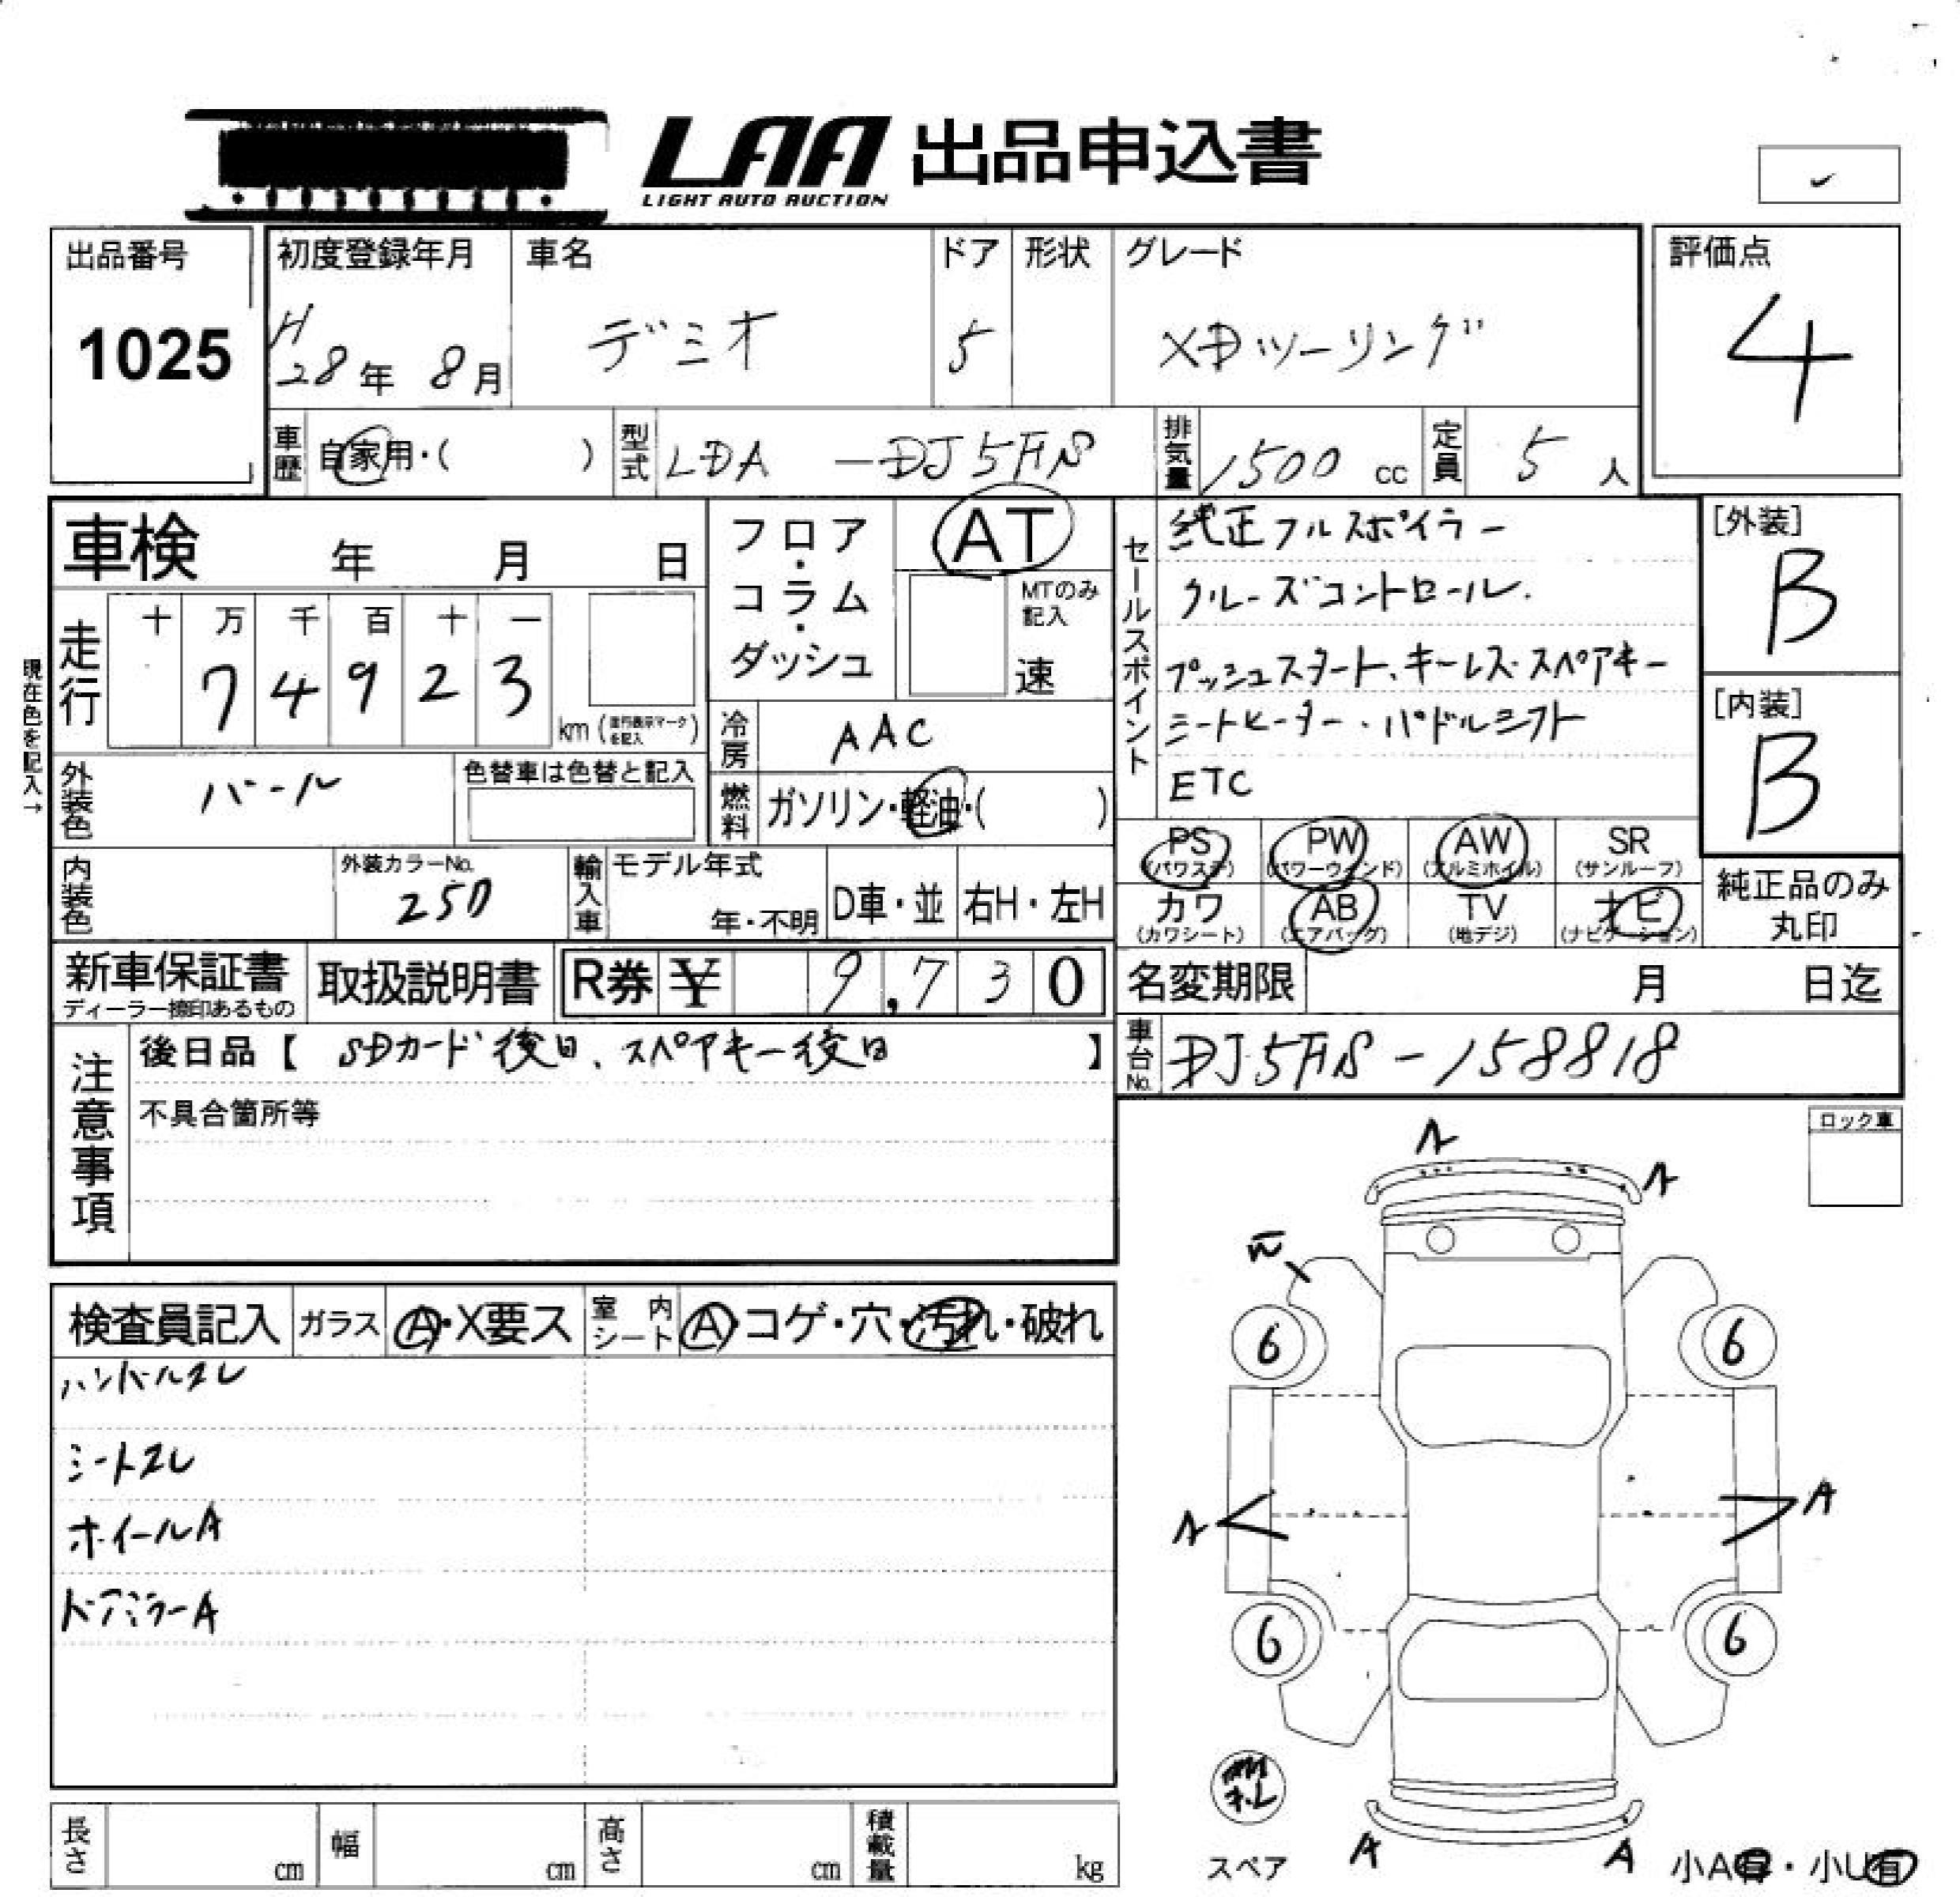 LAA 出品申込書
LIGHT AUTO AUCTION
出品番号
1025
初度登録年月
H
28年 8月
車名
デミオ
ドア
5
形状
グレード
XDツーリング
評価点
4
車歴
自家用・( )
型式
LDA -DJ5FS
排気量
1500 cc
定員
5 人
車検 年 月 日
フロア・コラム・ダッシュ
AT
MTのみ記入
速
セールスポイント
純正フルスポイラー
クルーズコントロール.
プッシュスタート、キーレス・スペアキー
シートヒーター・パドルシフト
ETC
[外装]
B
[内装]
B
現在色を記入→
走行
十 万 千 百 十 一
7 4 9 2 3
km (走行表示マークを記入)
冷房
AAC
燃料
ガソリン・軽油・( )
外装色
パール
色替車は色替と記入
内装色
外装カラーNo.
25D
輸入車
モデル年式
年・不明
D車・並
右H・左H
PS
(パワステ)
PW
(パワーウインド)
AW
(アルミホイル)
SR
(サンルーフ)
カワ
(カワシート)
AB
(エアバッグ)
TV
(地デジ)
ナビ
(ナビゲーション)
純正品のみ
丸印
新車保証書
ディーラー捺印あるもの
取扱説明書
R券 ¥ 9,730
名変期限 月 日迄
注意事項
後日品【 SDカード後日、スペアキー後日 】
不具合箇所等
車台No.
DJ5FS-158818
ロック車
検査員記入
ガラス
A・X要ス
室内シート
A・コゲ・穴・汚れ・破れ
ハンドルスレ
シートスレ
ホイールA
ドアミラーA
A
A
6
6
A
A
6
6
スペア
A
A
小A有・小U有
長さ cm
幅 cm
高さ cm
積載量 kg